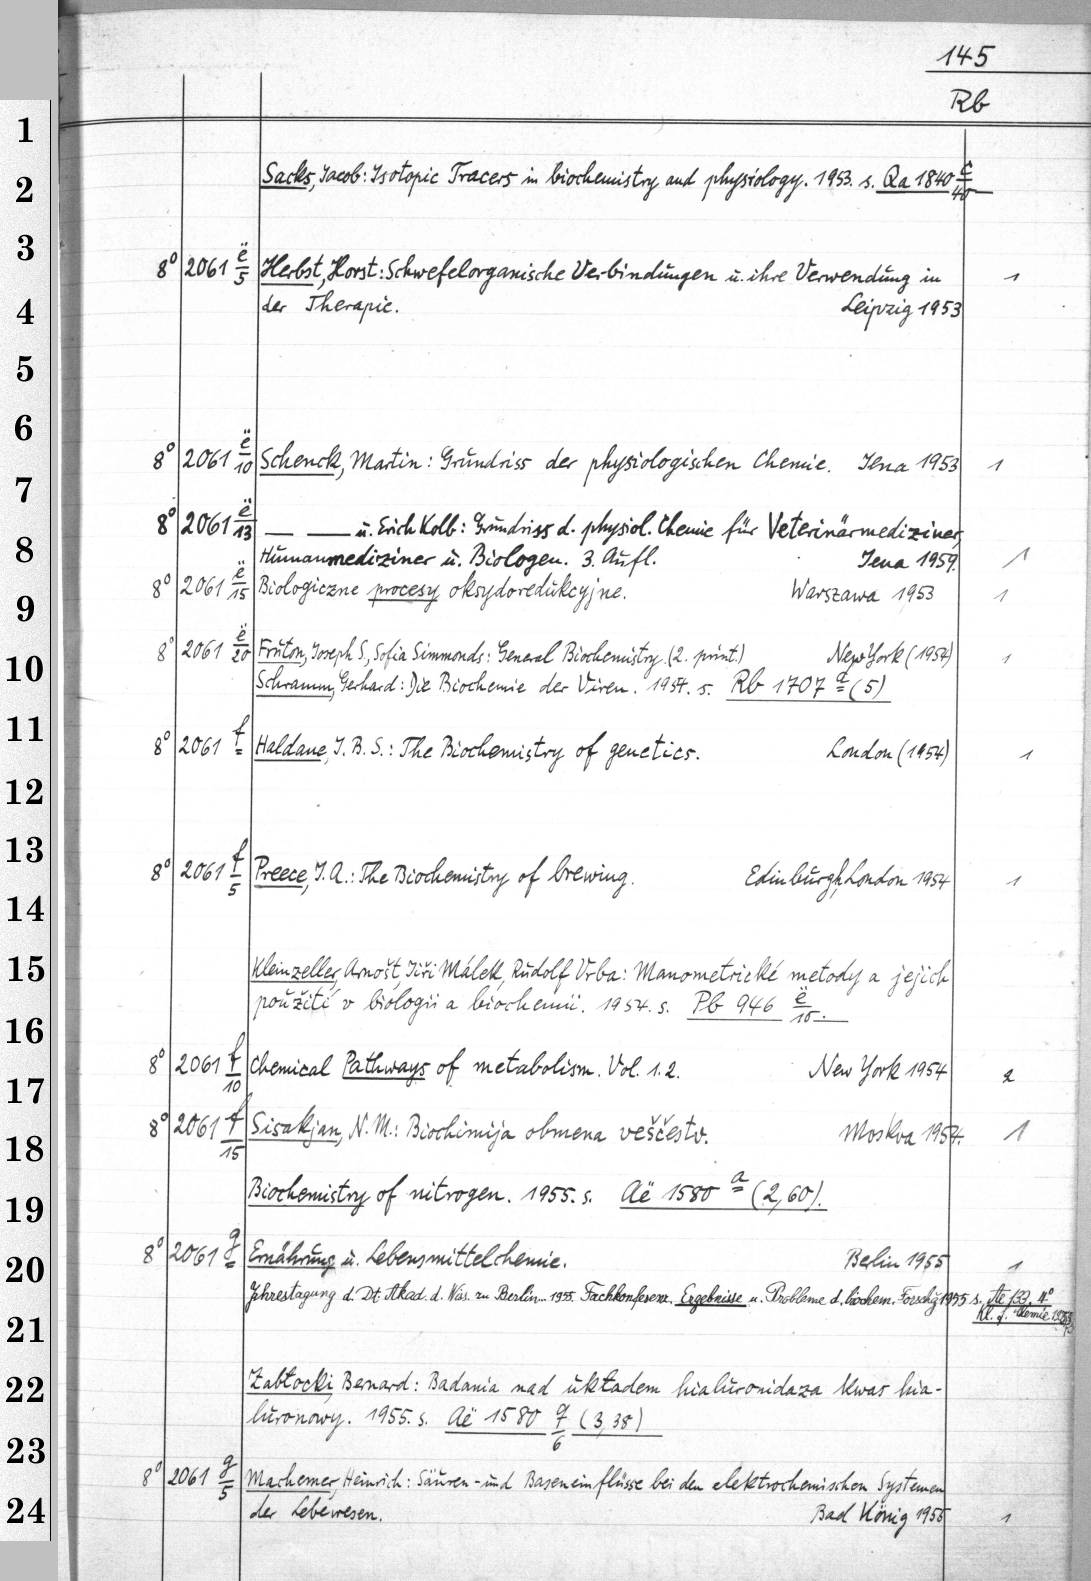 145
Rb
1
2 Sacks, Jacob: Isotopic Tracers in biochemistry and physiology. 1953. s. Qa 1840 c/40
3 8° 2061 ë/5 Herbst, Horst: Schwefelorganische Verbindungen u. ihre Verwendung in 1
4 der Therapie. Leipzig 1953
5
6
8° 2061 ë/10 Schenck, Martin: Grundriss der physiologischen Chemie. Jena 1953 1
7
8° 2061 ë/13 — — u. Erich Kolb: Grundriss d. physiol. Chemie für Veterinärmediziner,
8 Humanmediziner u. Biologen. 3. Aufl. Jena 1959. 1
9 8° 2061 ë/15 Biologiczne procesy oksydoredukcyjne. Warszawa 1953 1
8° 2061 ë/20 Fruton, Joseph S., Sofia Simmonds: General Biochemistry (2. print.) New York (1954) 1
10 Schramm, Gerhard: Die Biochemie der Viren. 1954. s. Rb 1707 a (5)
11 8° 2061 f Haldane, J. B. S.: The Biochemistry of genetics. London (1954) 1
12
13 8° 2061 f/5 Preece, I. A.: The Biochemistry of brewing. Edinburgh, London 1954 1
14
15 Kleinzeller, Arnošt, Jiří Málek, Rudolf Vrba: Manometrické metody a jejich
použití v biologii a biochemii. 1954. s. Pb 946 ë/10.
16
17 8° 2061 f/10 Chemical Pathways of metabolism. Vol. 1.2. New York 1954 2
18 8° 2061 f/15 Sisakjan, N. M.: Biochimija obmena veščestv. Moskva 1954. 1
19 Biochemistry of nitrogen. 1955. s. Aë 1580 a (2,60).
20 8° 2061 g Ernährung u. Lebensmittelchemie. Berlin 1955 1
Jahrestagung d. Dt. Akad. d. Wiss. zu Berlin 1955 Fachkonferenz. Ergebnisse u. Probleme d. biochem. Forschg 1955 s. 4°
21 Kl. f. Chemie
22 Zabłocki, Bernard: Badania nad układem hialuronidaza kwas hia-
luronowy. 1955. s. Aë 1580 q/6 (3,38)
23
8° 2061 g/5 Machemer, Heinrich: Säuren- und Baseneinflüsse bei den elektrochemischen Systemen
24 der Lebewesen. Bad König 1955 1